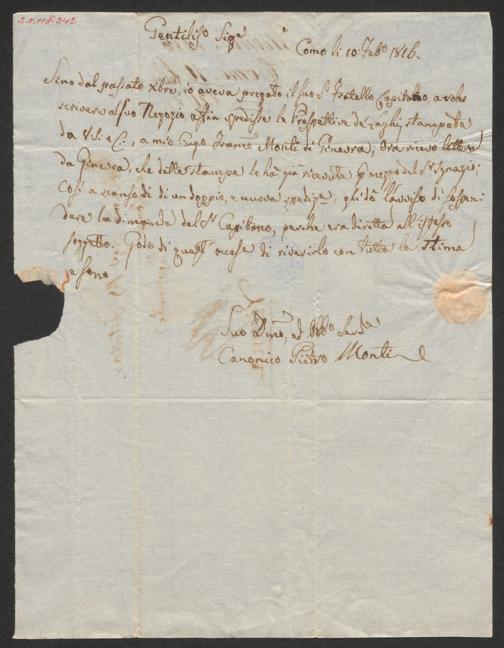 2.11.118.342
Gentiliso Sigre
Como li 10: Febo 1816.
Sino dal passato Xbre, io aveva pregato il suo Sr Fratello Capitano, a voler
scrivere al suo Negozio affin spedisse le Prospettive de' Laghi stampate
da V.S. e C., a mio Cugo Franco Monti di Ginevra; Ora ricevo lettera
da Ginevra, che dette stampe le ha già ricevute p mezzo del Sr
Così a scansо di un doppia, e nuova spedize, gli dò l'avviso di sospen
dere la dimanda del Sr Capitano, perche era diretta all'istesso
soggetto. Godo di questa occase di riverirlo con tutta la stima
e sono
Suo Dmo, ed Obbo Serve
Canonico Pietro Monti